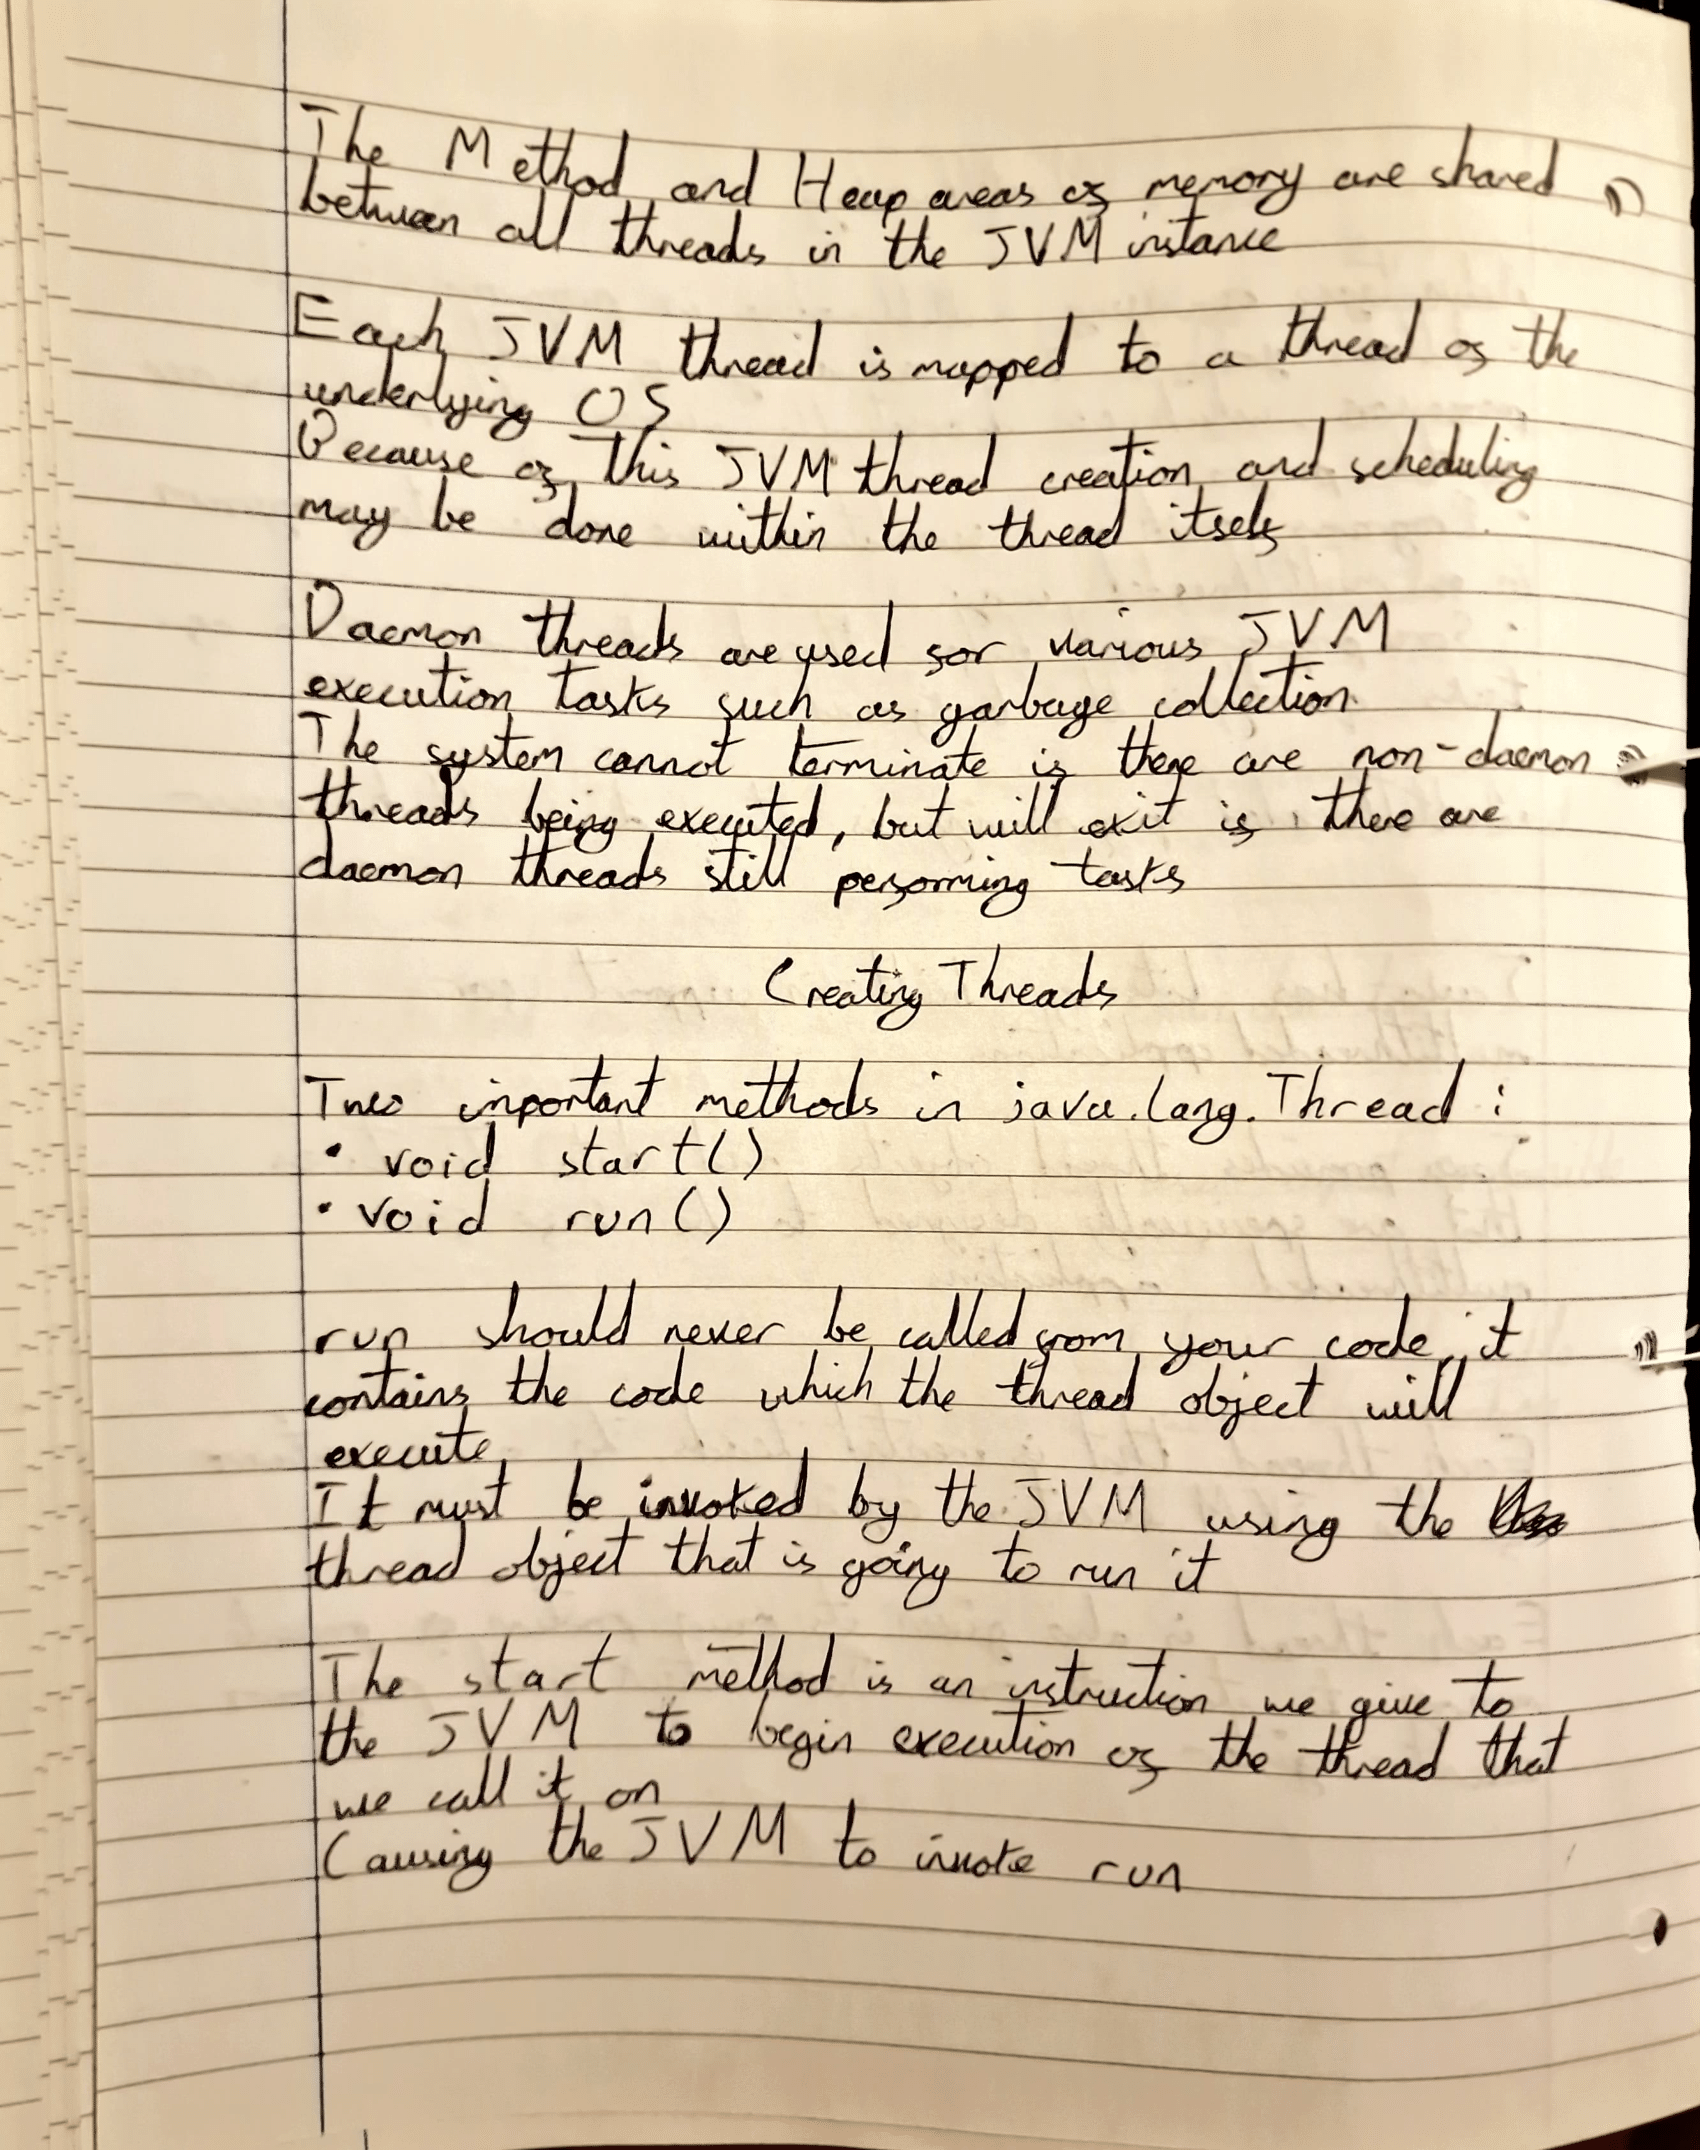 The Method and Heap areas of memory are shared
between all threads in the JVM instance
Each JVM thread is mapped to a thread of the
underlying OS
Because of this JVM thread creation and scheduling
may be done within the thread itself
Daemon threads are used for various JVM
execution tasks such as garbage collection.
The system cannot terminate if there are non-daemon
threads being executed, but will exit if there are
daemon threads still performing tasks
Creating Threads
Two important methods in java.lang.Thread :
• void start()
• void run()
run should never be called from your code, it
contains the code which the thread object will
execute
It must be invoked by the JVM using the
thread object that is going to run it
The start method is an instruction we give to
the JVM to begin execution of the thread that
we call it on
Causing the JVM to invoke run